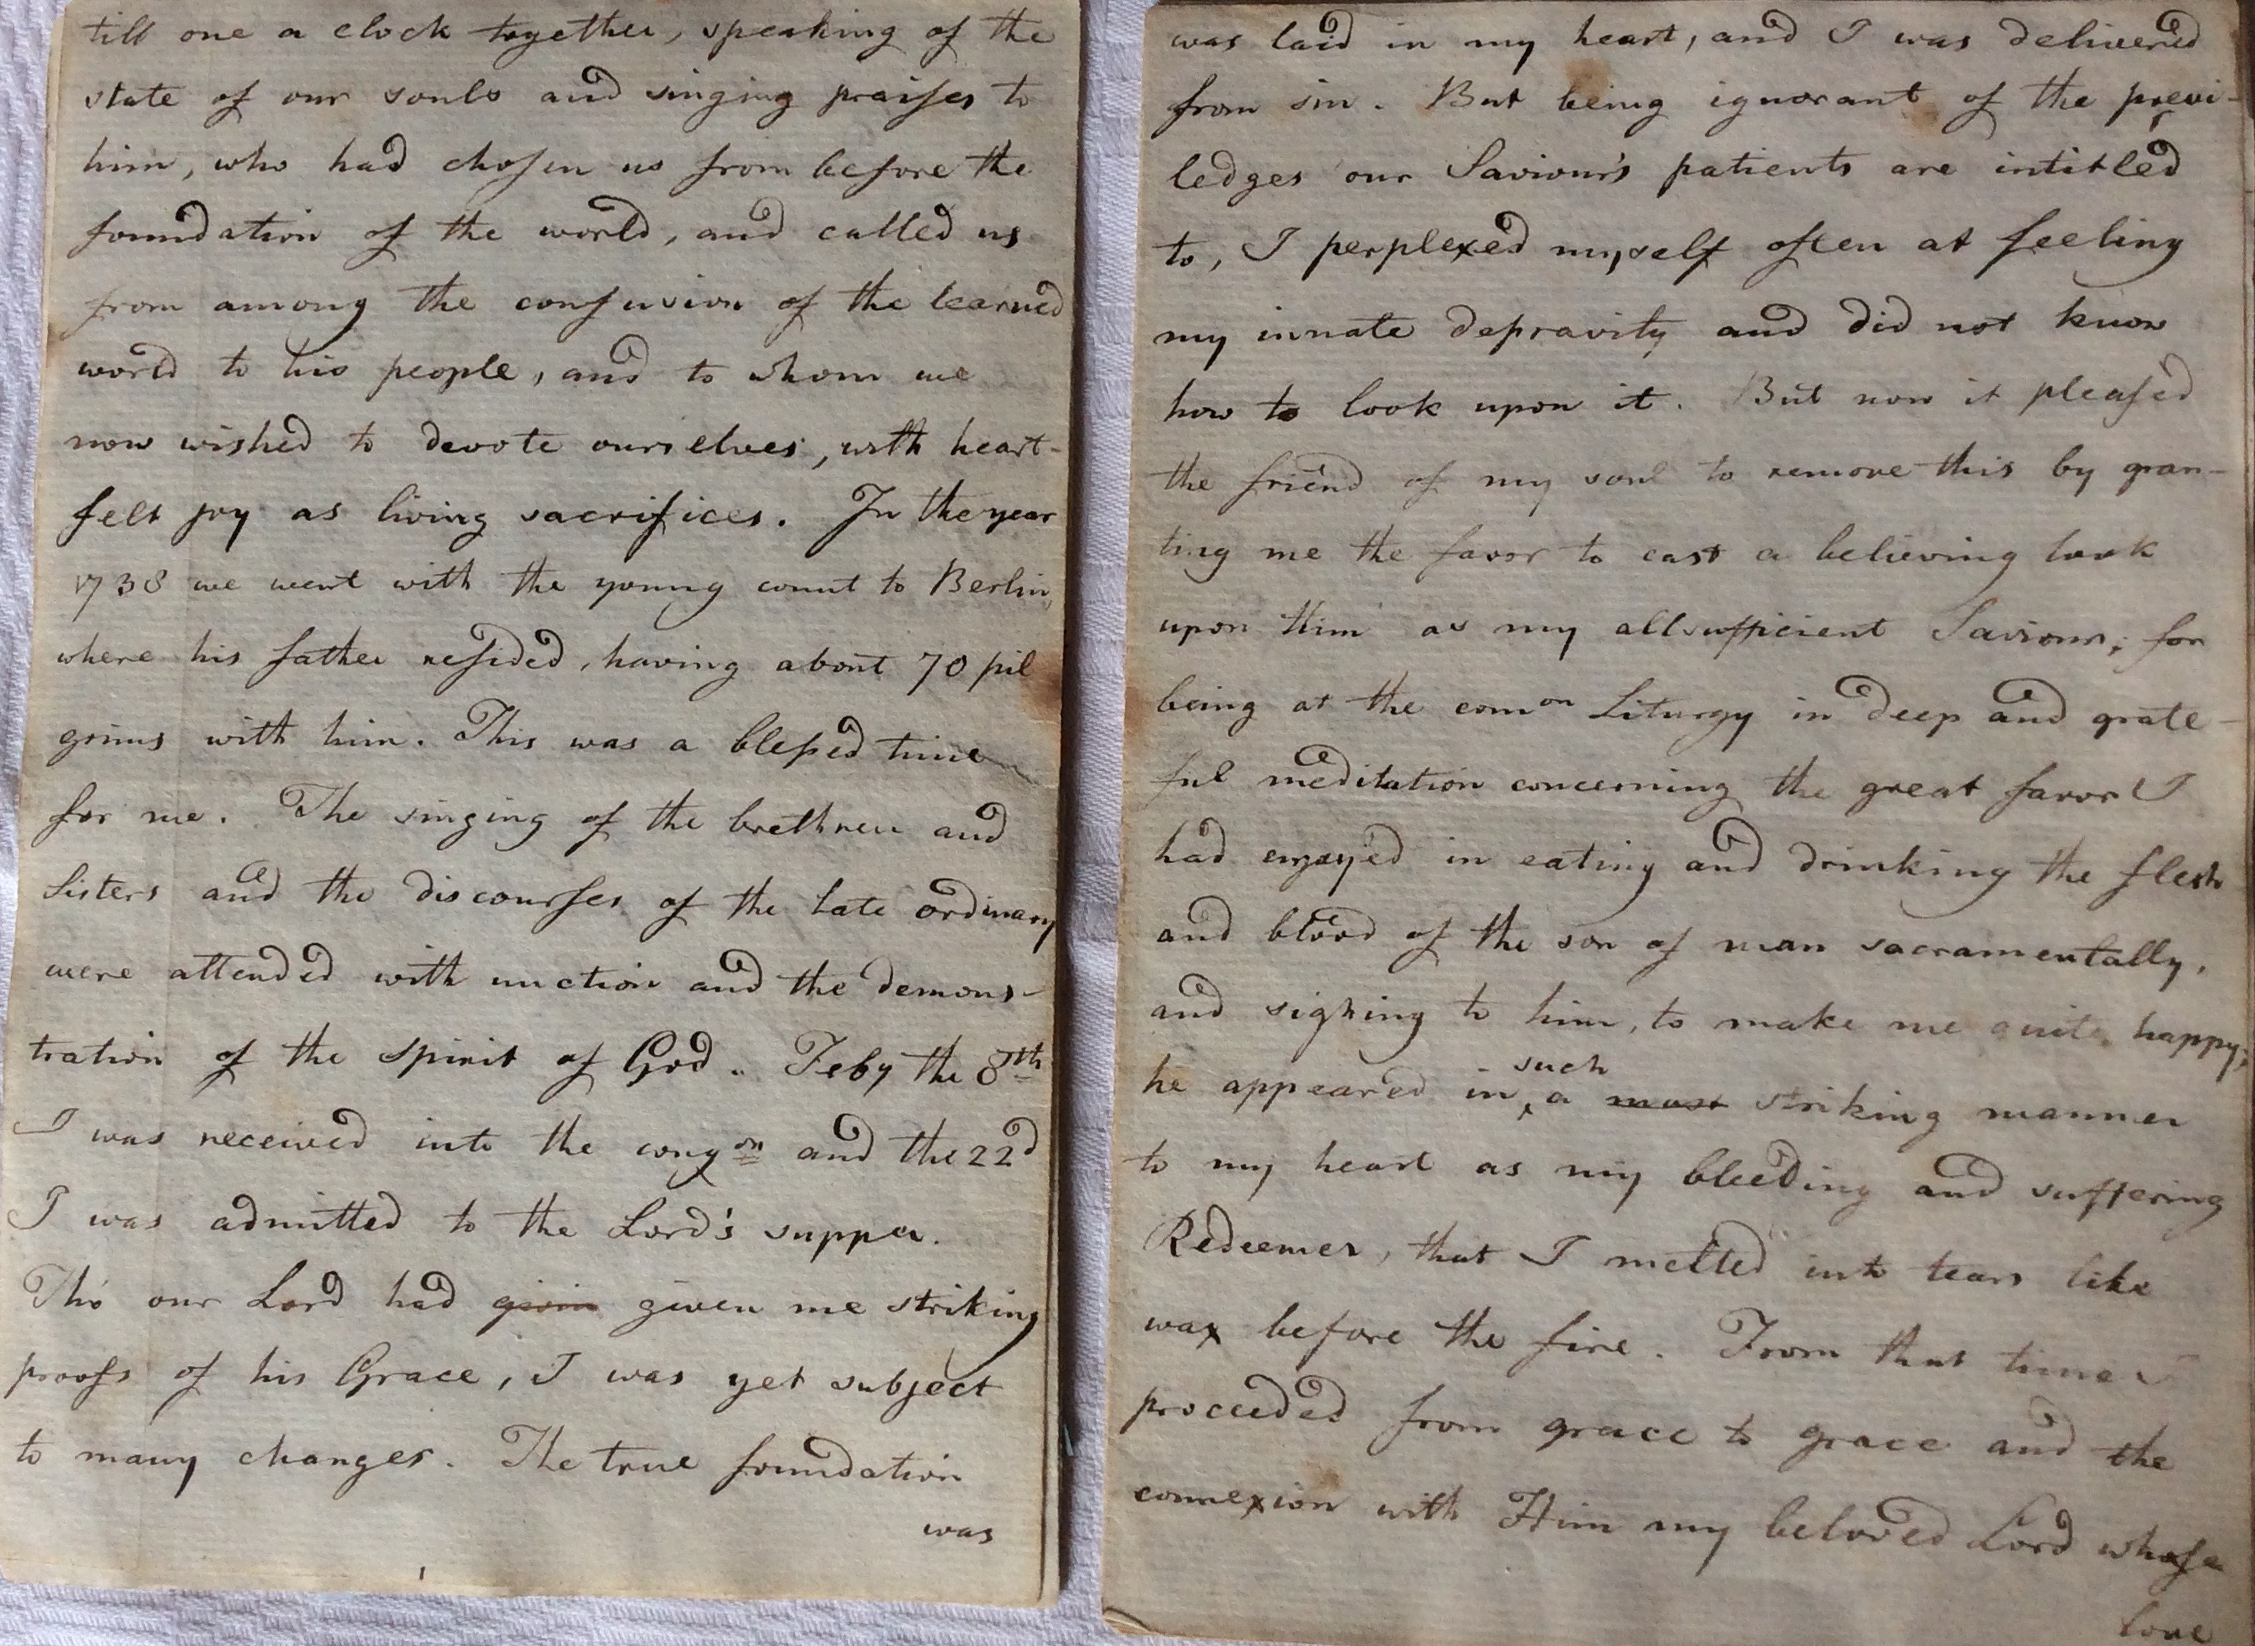 till one a clock together, speaking of the
state of our souls and singing praises to
him, who had chosen us from before the
foundation of the world, and called us
from among the confusion of the learned
world to his people, and to whom we
now wished to devote ourselves, with heart-
felt joy as living sacrifices. In the year
1738 we went with the young count to Berlin,
where his father resided, having about 70 pil
grims with him. This was a blessed time
for me. The singing of the brethren and
Sisters and the discourses of the late ordinary
were attended with unction and the demons-
tration of the spirit of God. Feby the 8th
I was received into the congon and the 22d
I was admitted to the Lord's supper.
Tho' our Lord had givin given me striking
proofs of his Grace, I was yet subject
to many changes. The true foundation
was
was laid in my heart, and I was delivered
from sin. But being ignorant of the previ-
ledges our Saviour's patients are intitled
to, I perplexed myself often at feeling
my innate depravity and did not know
how to look upon it. But now it pleased
the friend of my soul to remove this by gran-
ting me the favor to cast a believing look
upon Him as my allsufficient Saviour; for
being at the comon Liturgy in deep and grate-
ful meditation concerning the great favor I
had enjoyed in eating and drinking the flesh
and blood of the son of man sacramentally,
and sighing to him, to make me quite happy;
he appeared in such a most striking manner
to my heart as my bleeding and suffering
Redeemer, that I melted into tears like
wax before the fire. From that time I
proceeded from grace to grace and the
connexion with Him my beloved Lord whose
love